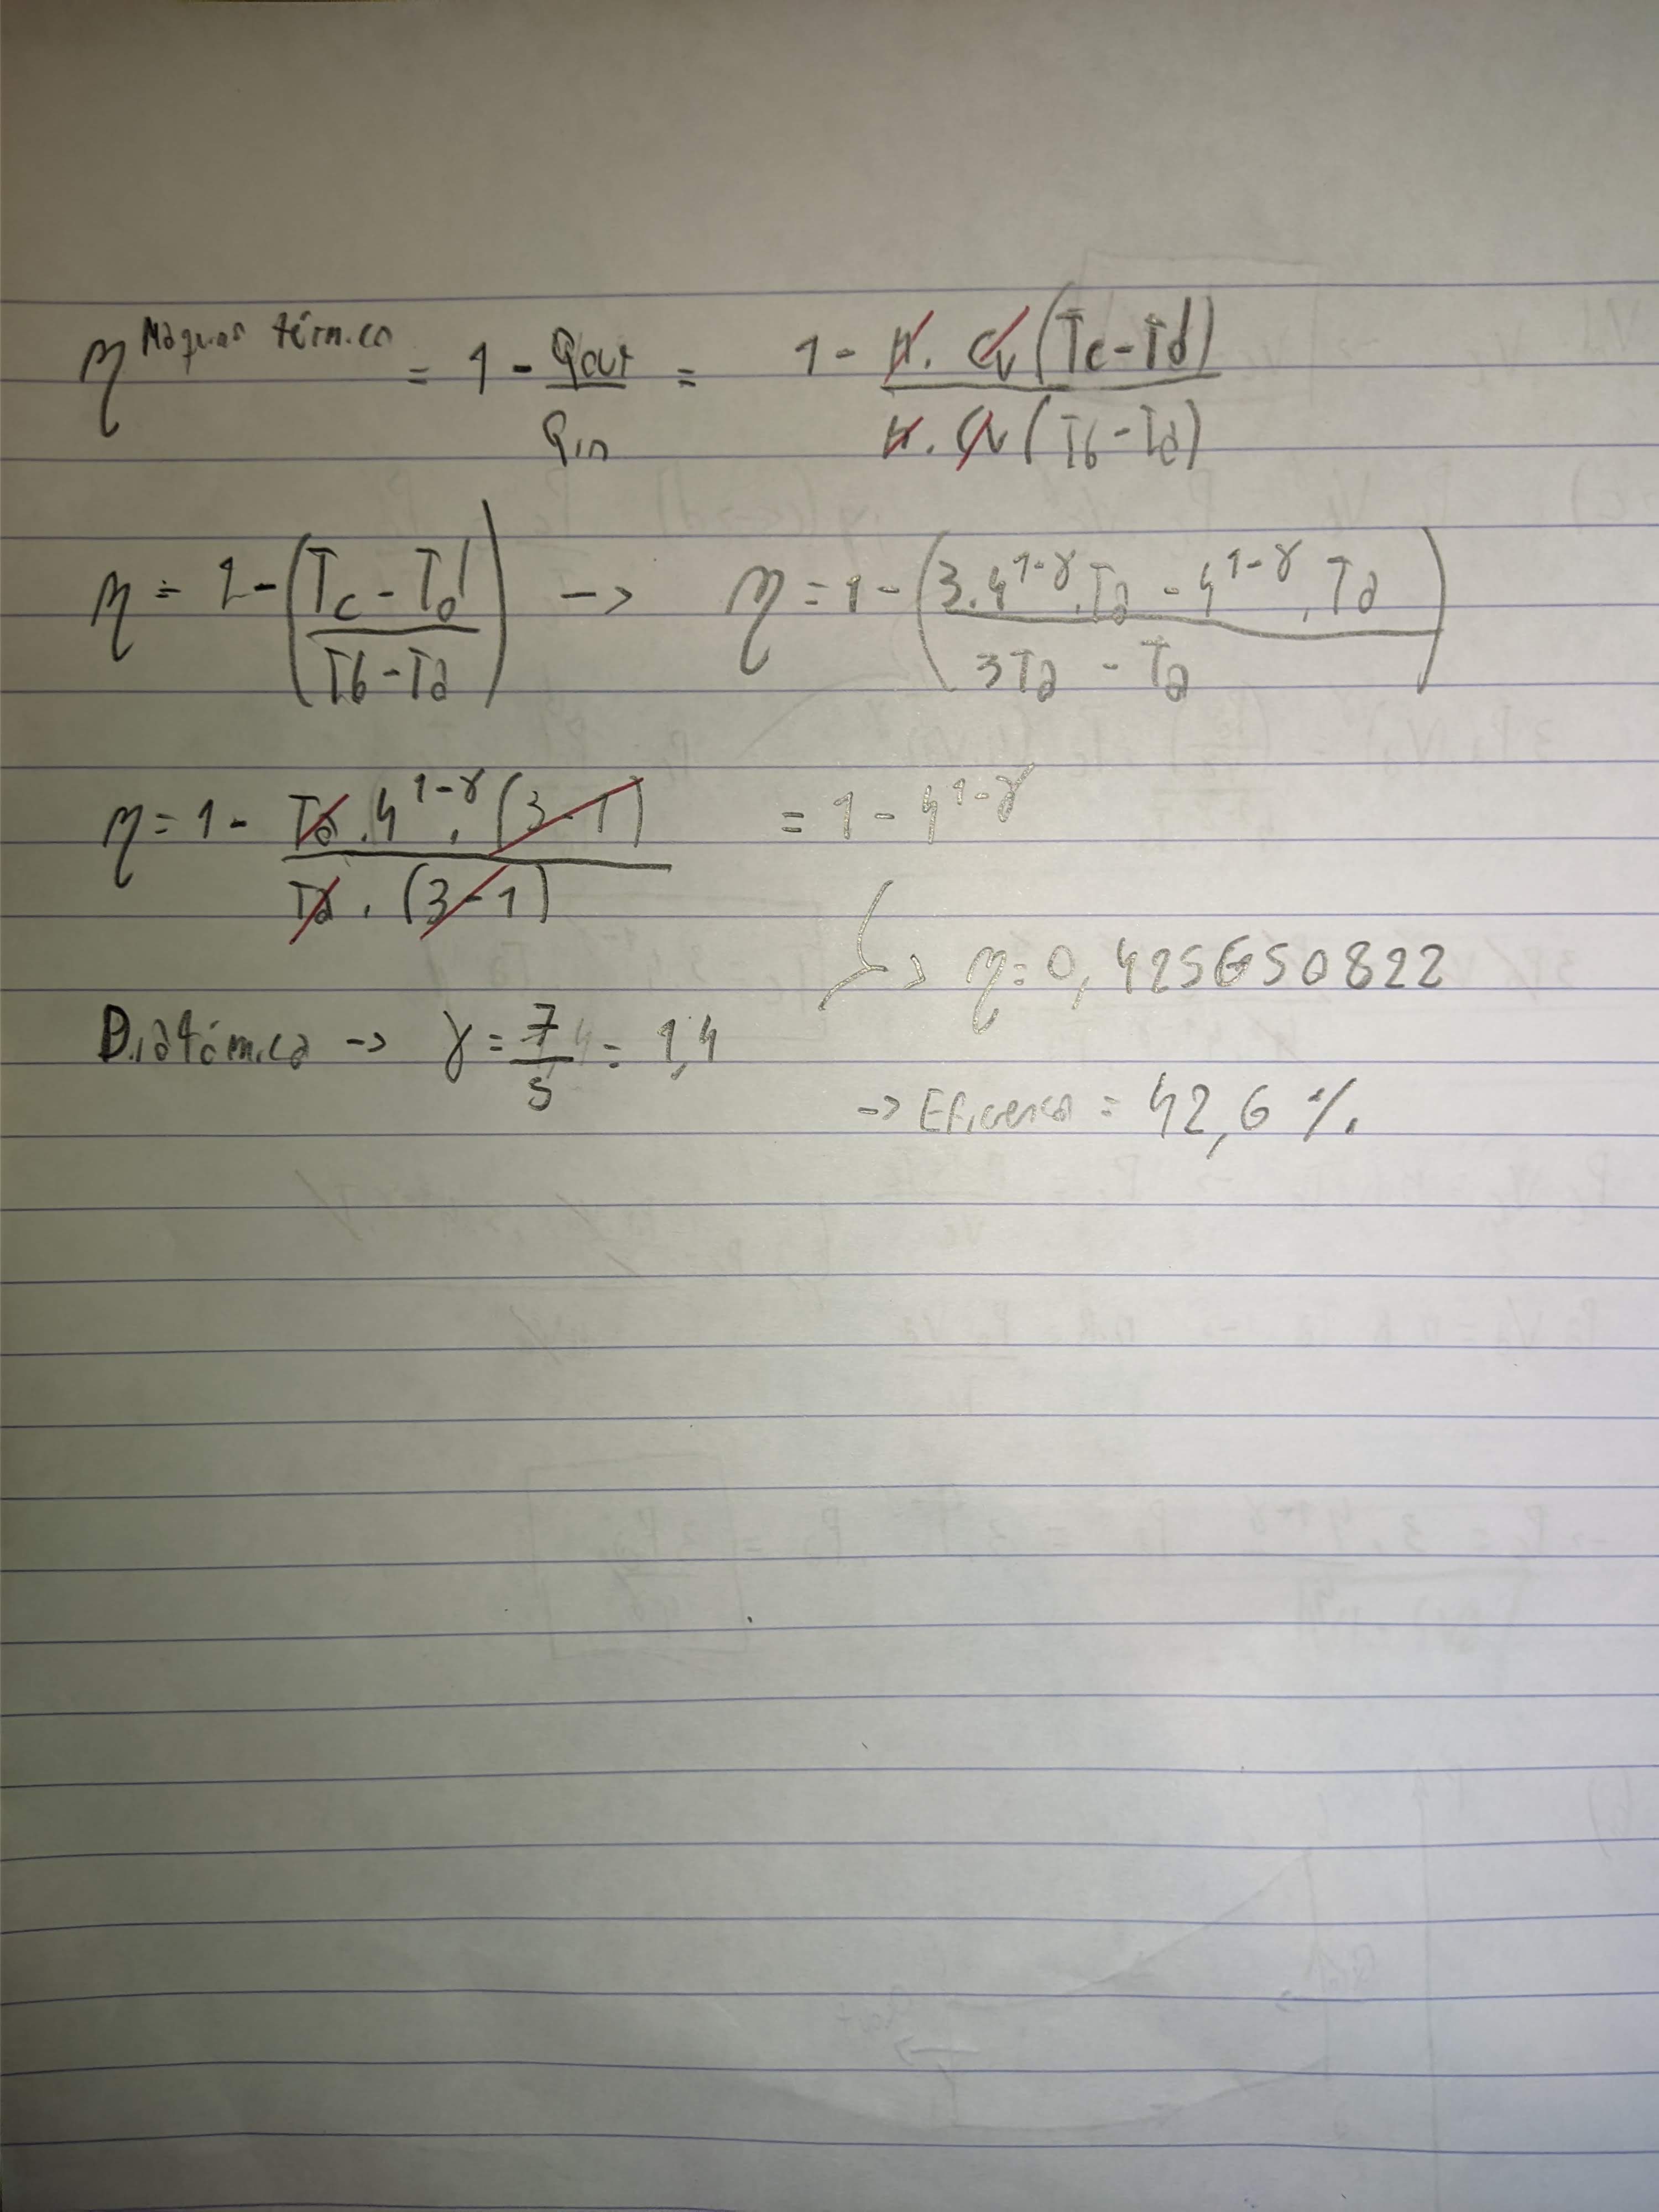 η^Máquina térmica = 1 - Qout/Qin = 1 - n.Cv(Tc-Td)/n.Cv(Tb-Ta)
η = 1-(Tc-Td/Tb-Ta) -> η = 1-(3.4^1-γ.Ta - 4^1-γ.Ta/3Ta - Ta)
η = 1 - Ta.4^1-γ.(3-1)/Ta.(3-1) = 1 - 4^1-γ
-> η = 0,425650822
Diatómica -> γ = 7/5 = 1,4
-> Eficiencia = 42,6 %.